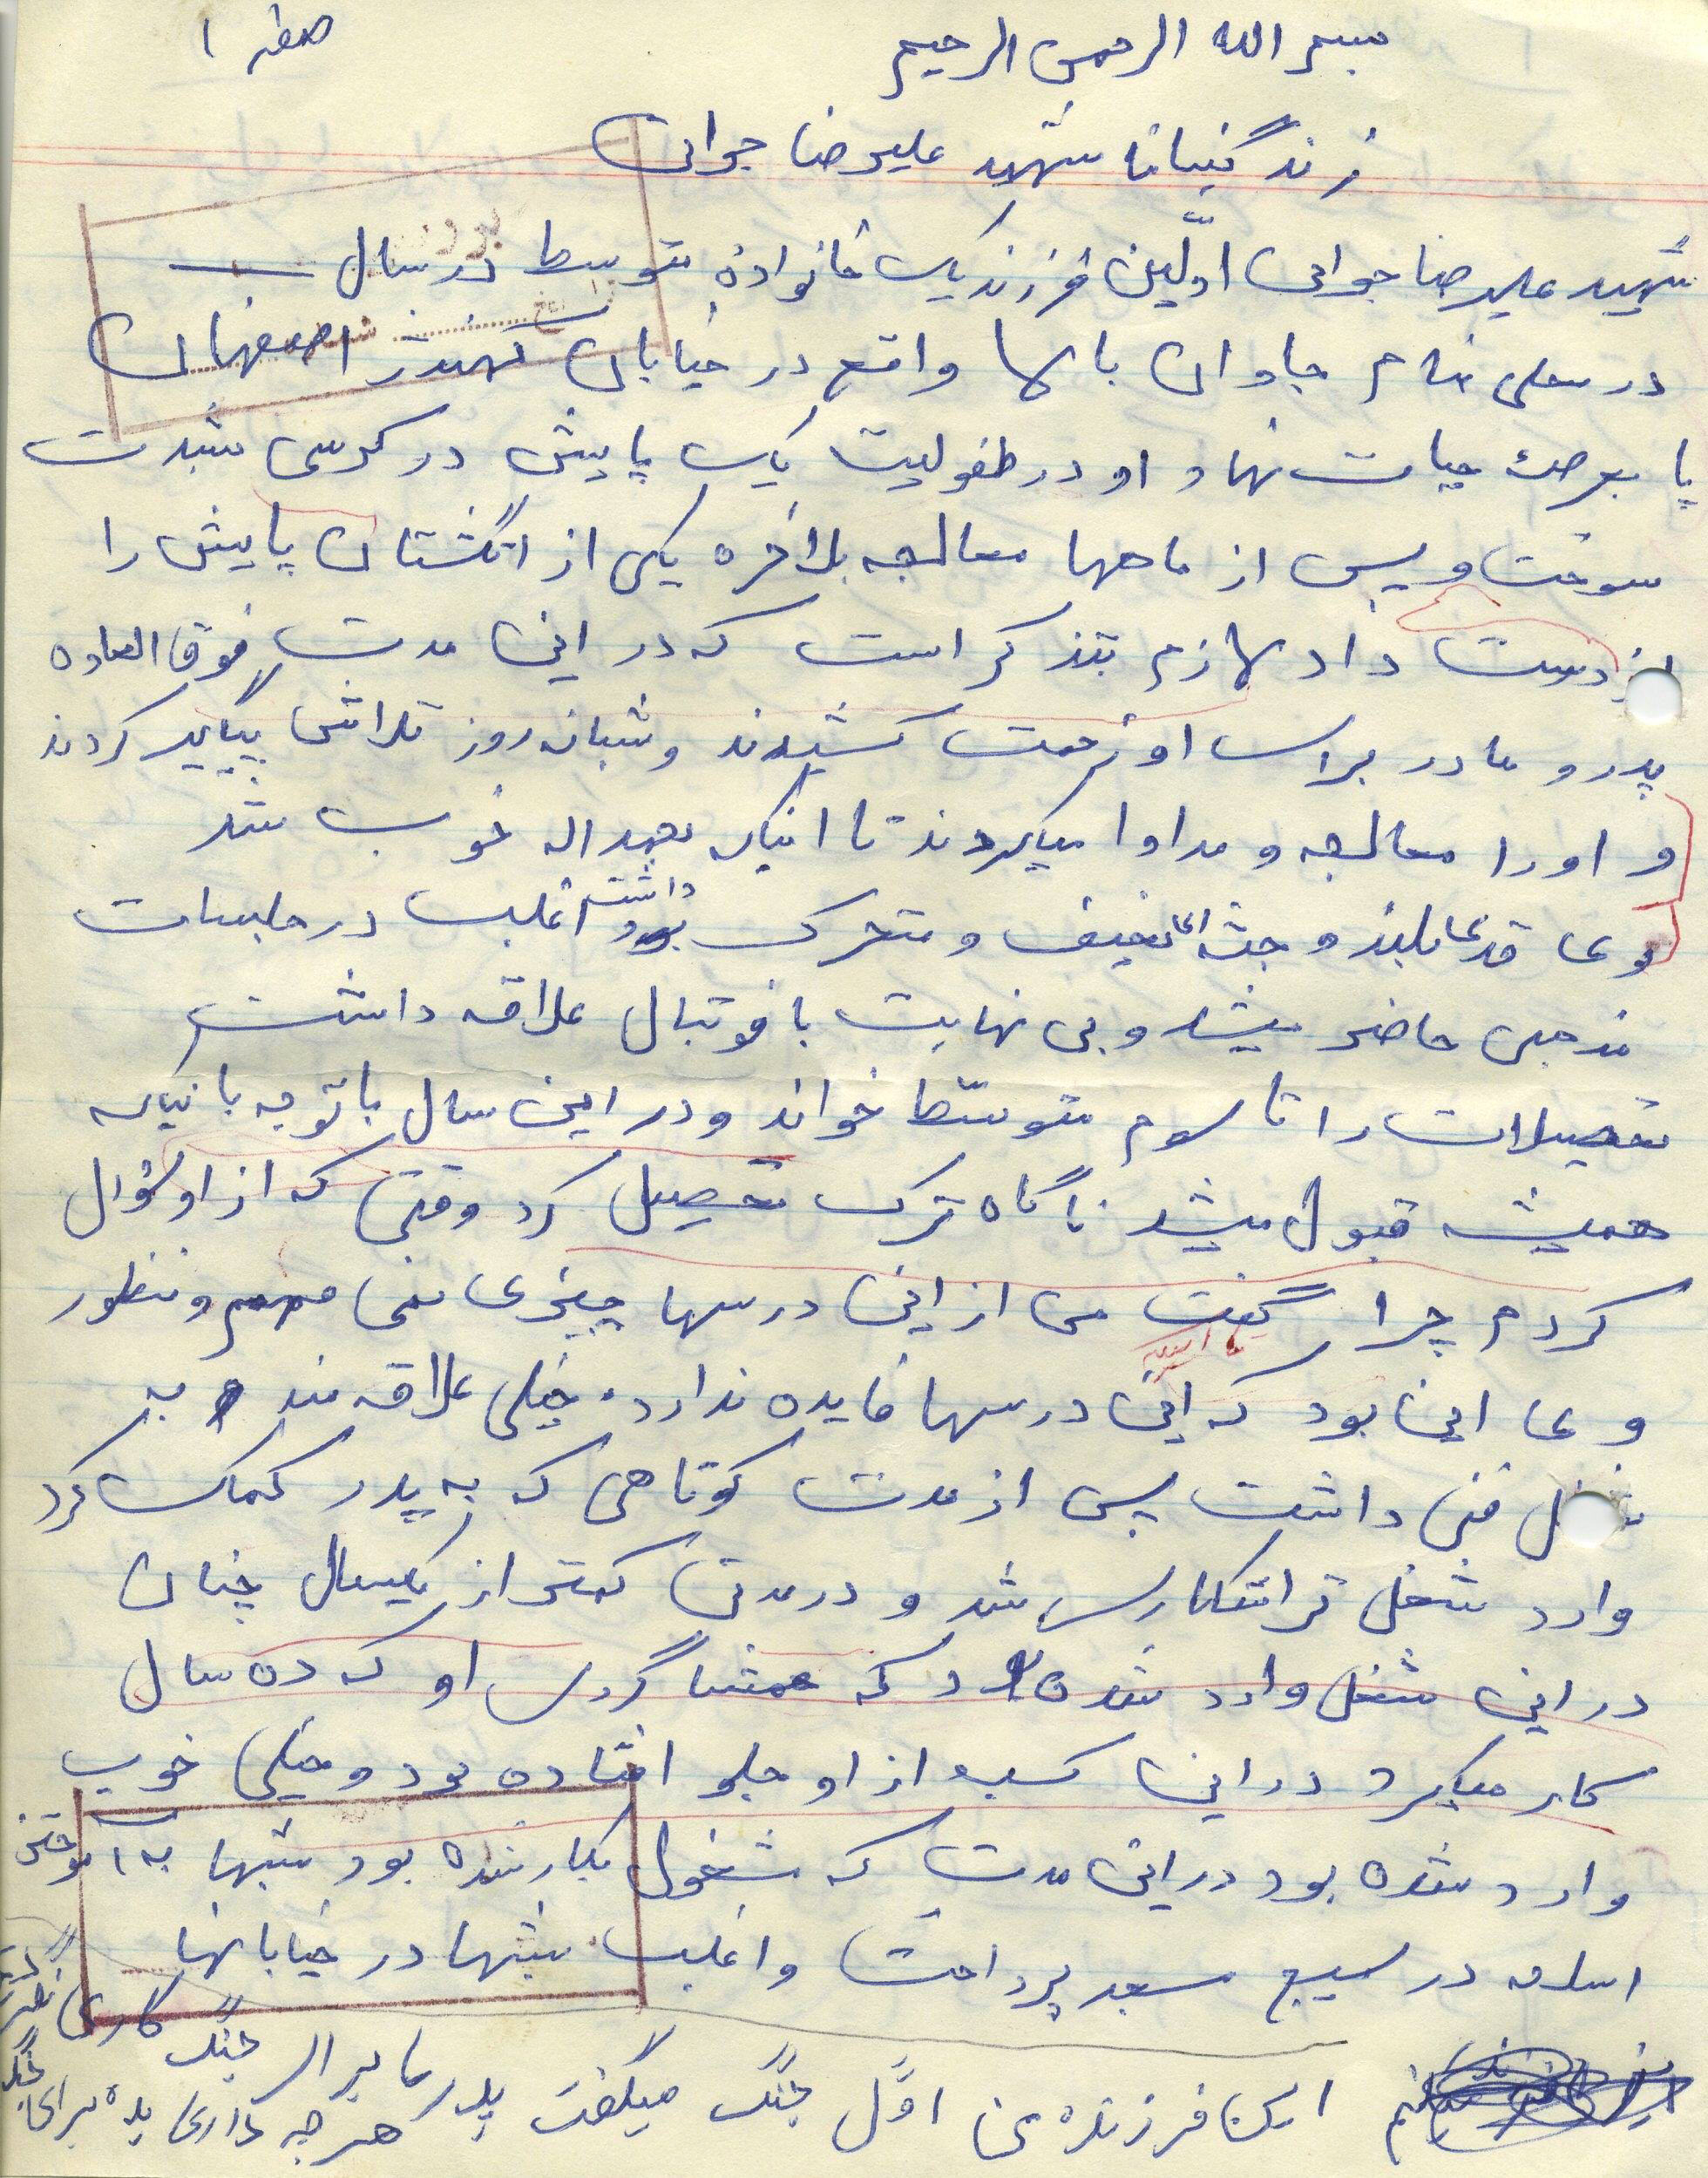 صفحه ۱
بسم الله الرحمن الرحیم
زندگینامه شهید علیرضا جوانی
شهید علیرضا جوانی اوّلین فرزند یک خانواده متوسط در سال
در محلی بنام جاوان بالا واقع در خیابان کهندژ اصفهان
پا بعرصه حیات نهاد او در طفولیت یک پایش در کرسی بشدت
سوخت و پس از ماهها معالجه بلاخره یکی از انگشتان پایش را
از دست داد لازم بتذکر است که در این مدت فوق العاده
پدر و مادر برای او زحمت کشیدند و شبانه روز تلاش پیگیر کردند
و او را معالجه و مداوا میکردند تا اینکه بحمداله خوب شد
وی قدی بلند و جثه ای نحیف و متحرک داشت اغلب در جلسات
مذهبی حاضر میشد و بی نهایت با فوتبال علاقه داشت
تحصیلات را تا سوم متوسّط خواند و در این سال با توجه باینکه
همیشه قبول میشد ناگاه ترک تحصیل کرد وقتی که از او سؤال
کردم چرا گفت من از این درسها چیزی نمی فهمم و منظور
وی این بود که این درسها فایده ندارد. خیلی علاقه مند به
شغل فنی داشت پس از مدت کوتاهی که به پدر کمک کرد
وارد شغل تراشکاری شد و در مدتی کمتر از یکسال چنان
در این شغل وارد شد که همشاگردی او که ده سال
کار میکرد در این کسب از او جلو افتاده بود و خیلی خوب
وارد شده بود در این مدت که مشغول بکار شده بود شبها به آموختن
اسلحه در بسیج مسجد پرداخت و اغلب شبها در خیابانها
این فرزند من اوّل جنگ میگفت پدر ما برای جنگ کاری
هر چه داری بده برای جنگ